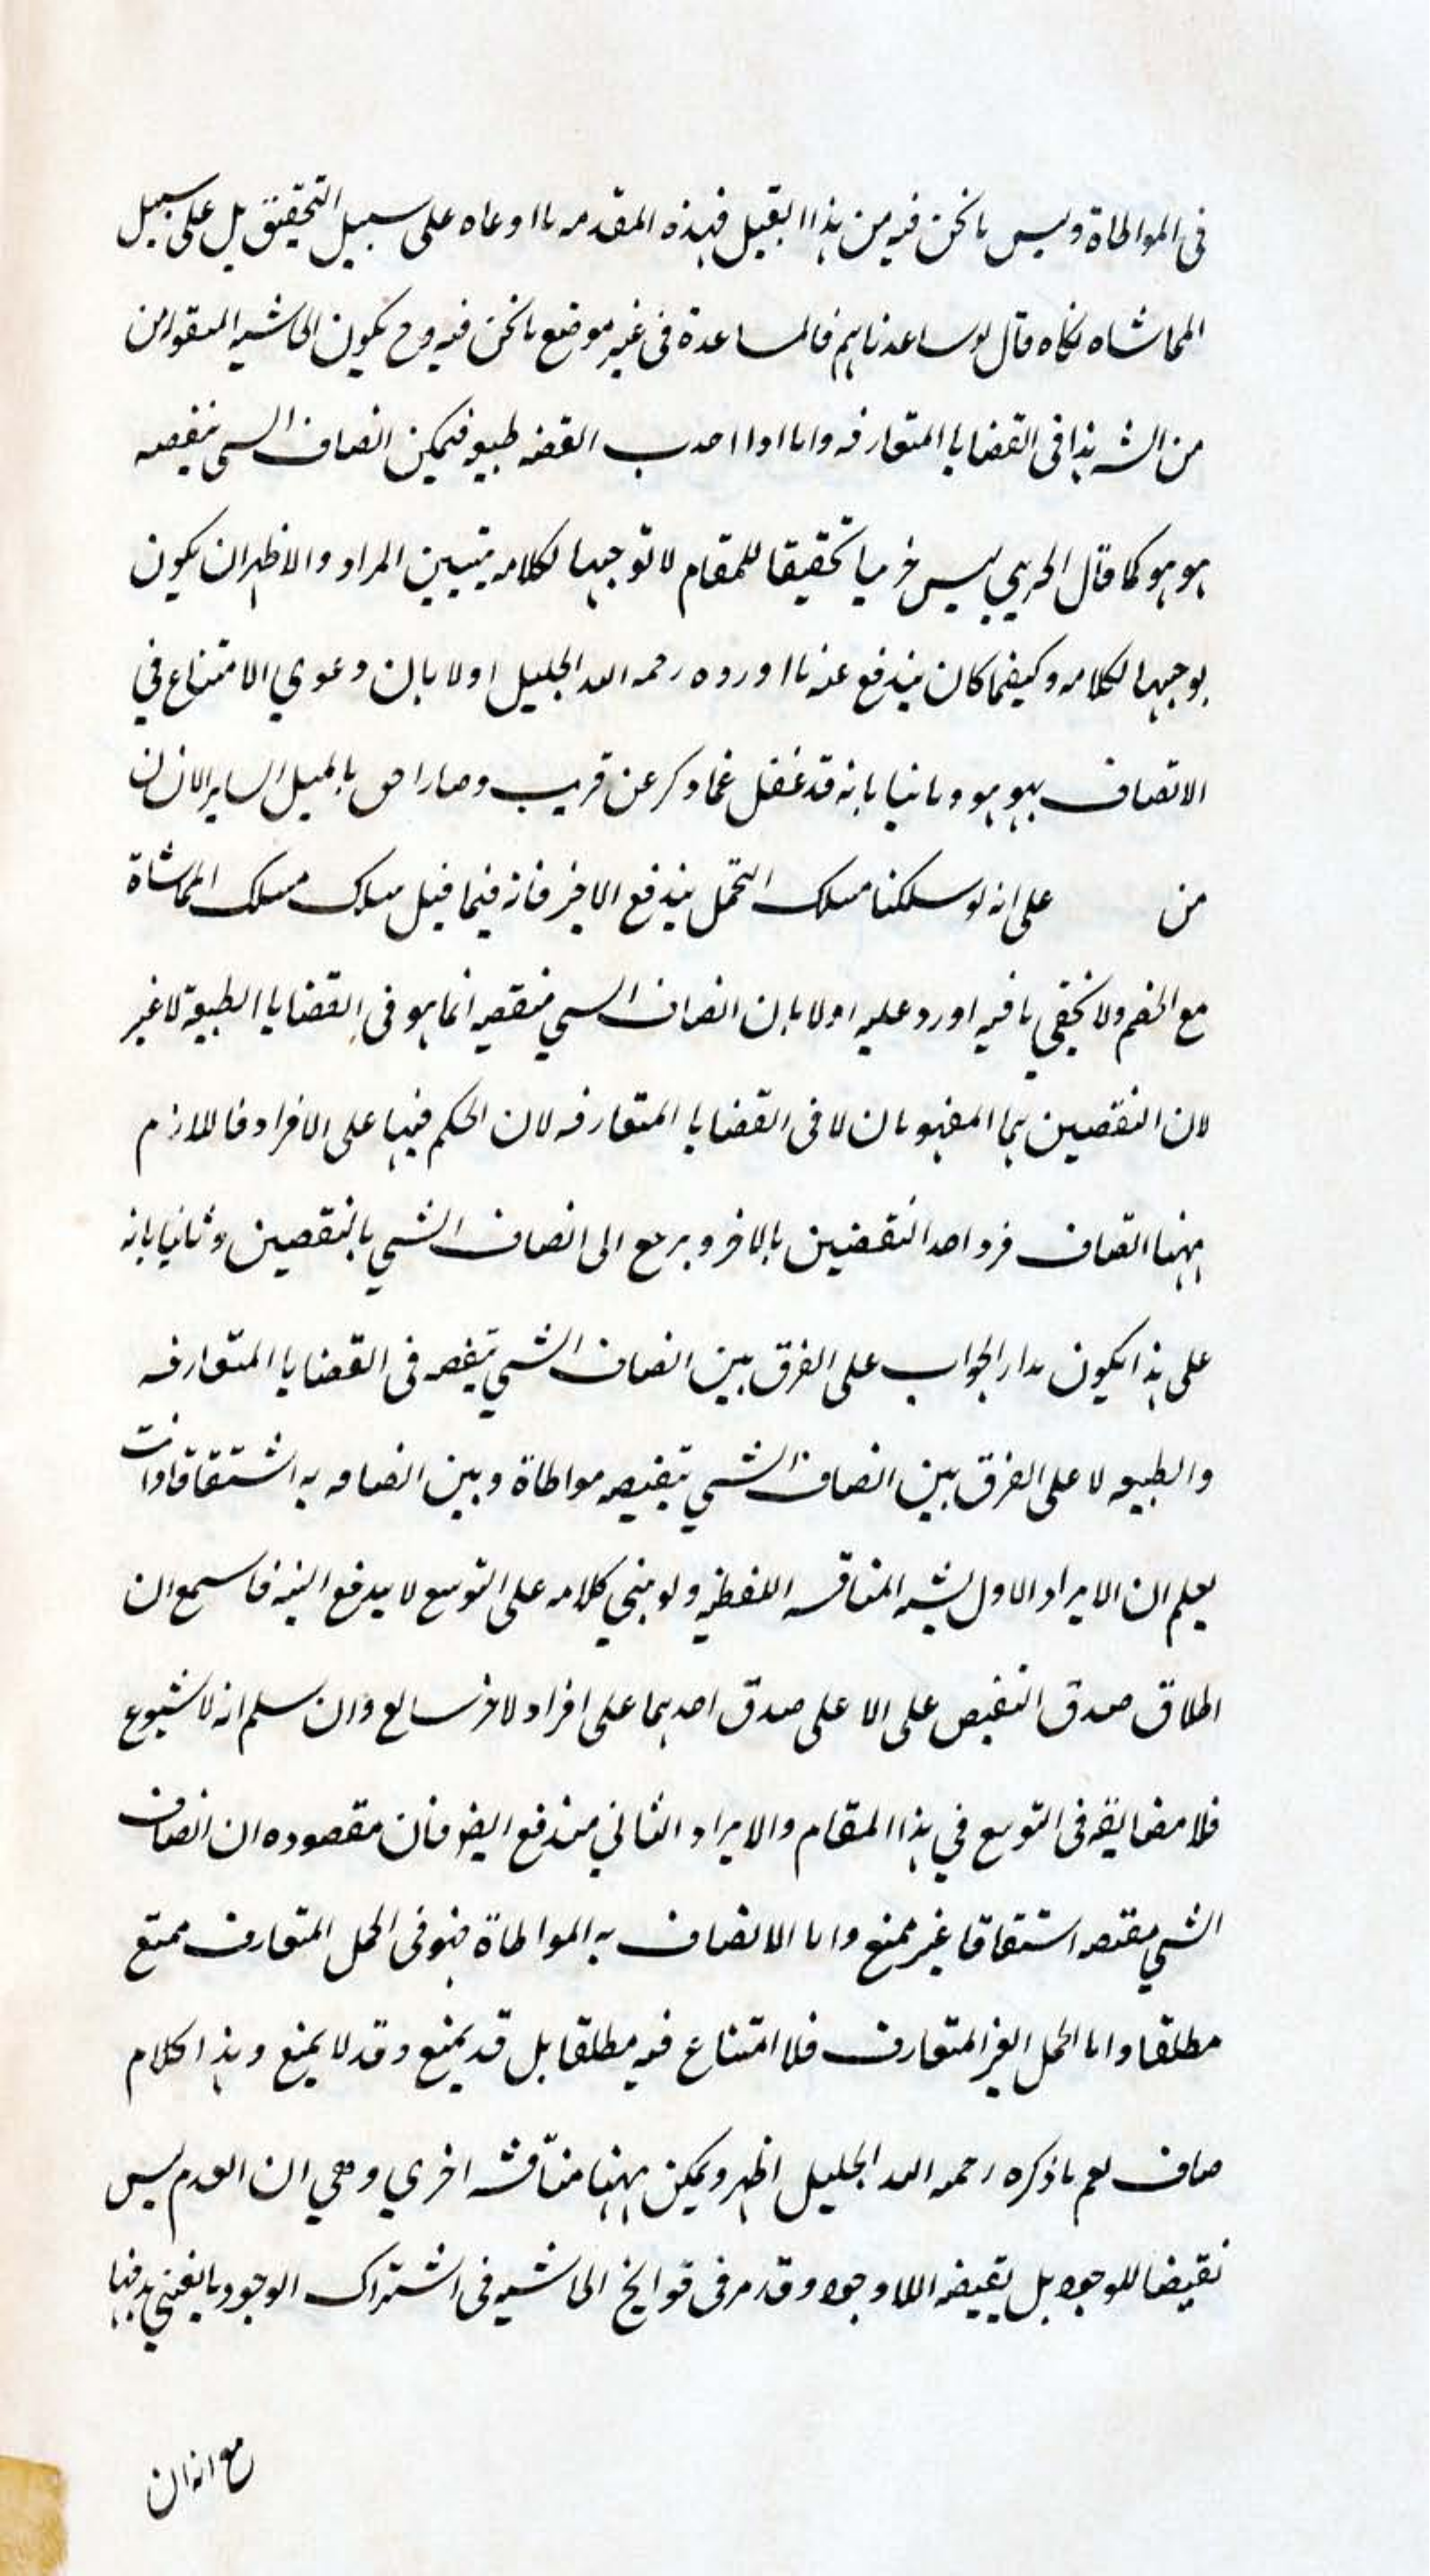 فى المواطاة وليس ما نحن فيه من هذا القبيل فهذه المقدمه ما ادعاه على سبيل التحقيق بل على سبيل
المماشاه فكاه قال لو ساعدناهم فالمساعدة فى غير موضع ما نحن فيه وح يكون الحاشيه
من هذا فى القضايا المتعارفه واما اذا القضه طبيعه فيمكن اتصاف الشى بنقيضه
هو هو كما قال ليس تحقيقا للمقام لا توجيها لكلامه بتبيين المراد والاظهر ان يكون
توجيها لكلامه وكيفما كان يندفع عنه ما اورده رحمه الله الجليل اولا بان دعوي الامتناع في
الاتصاف بهو هو وثانيا بانه قد غفل عما ذكر عن قريب وصار
من على انه لو سلكنا مسلك التحمل يندفع الاخير فانه فيما قبل سلك مسلك المماشاة
مع الخصم ولا يخفي ما فيه اورد عليه اولا بان اتصاف الشي بنقيضه انما هو فى القضايا الطبيعة لا غير
لان النقيضين هما المفهومان لا فى القضايا المتعارفه لان الحكم فيها على الافراد فاللازم
ههنا اتصاف فرد احد النقيضين بالاخر ويرجع الى اتصاف الشي بالنقيضين وثانيا بانه
على هذا يكون مدار الجواب على الفرق بين اتصاف الشي بنقيضه فى القضايا المتعارفه
والطبيعه لا على الفرق بين اتصاف الشي بنقيضه مواطاة وبين اتصافه به اشتقاقا وانت
تعلم ان الايراد الاول يشبه المناقشه اللفظيه ولو بني كلامه على التوسع لا يندفع البته فاسمع ان
اطلاق صدق النقيض على الا على صدق احدهما على افراد الاخر شايع وان سلم انه لا شيوع
فلا مضايقه فى التوسع في هذا المقام والايراد الثاني مندفع ايضا فان مقصوده ان اتصاف
الشي بنقيضه اشتقاقا غير ممتنع واما الاتصاف به المواطاة فهو فى الحمل المتعارف ممتنع
مطلقا واما الحمل الغير المتعارف فلا امتناع فيه مطلقا بل قد يمتنع وقد لا يمتنع وهذا كلام
صاف نعم ما ذكره رحمه الله الجليل اظهر ويمكن ههنا مناقشه اخري وهي ان العدم ليس
نقيضا للوجود بل نقيضه اللاوجود وقد مر فى فواتح الحاشيه فى اشتراك الوجود ما يغني
مع انه ان